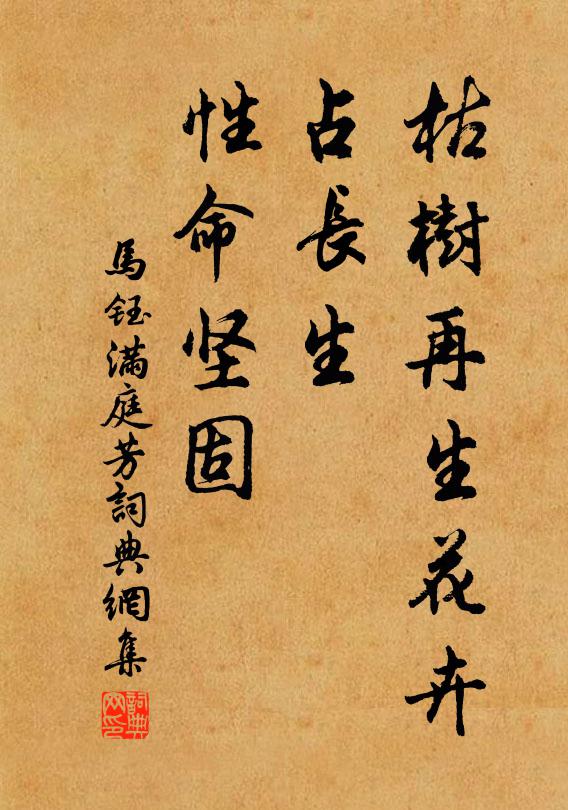 枯樹再生花卉
占長生
性命坚固
馬鈺滿庭芳詞典網集
詞典网印